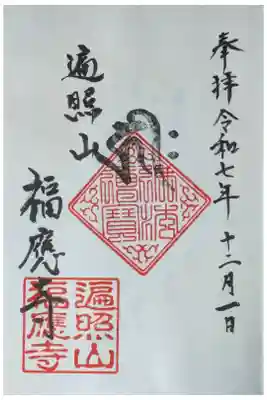 奉拝 令和七年 十二月一日
遍照山
福應寺
佛法僧寶
遍照山
福應寺